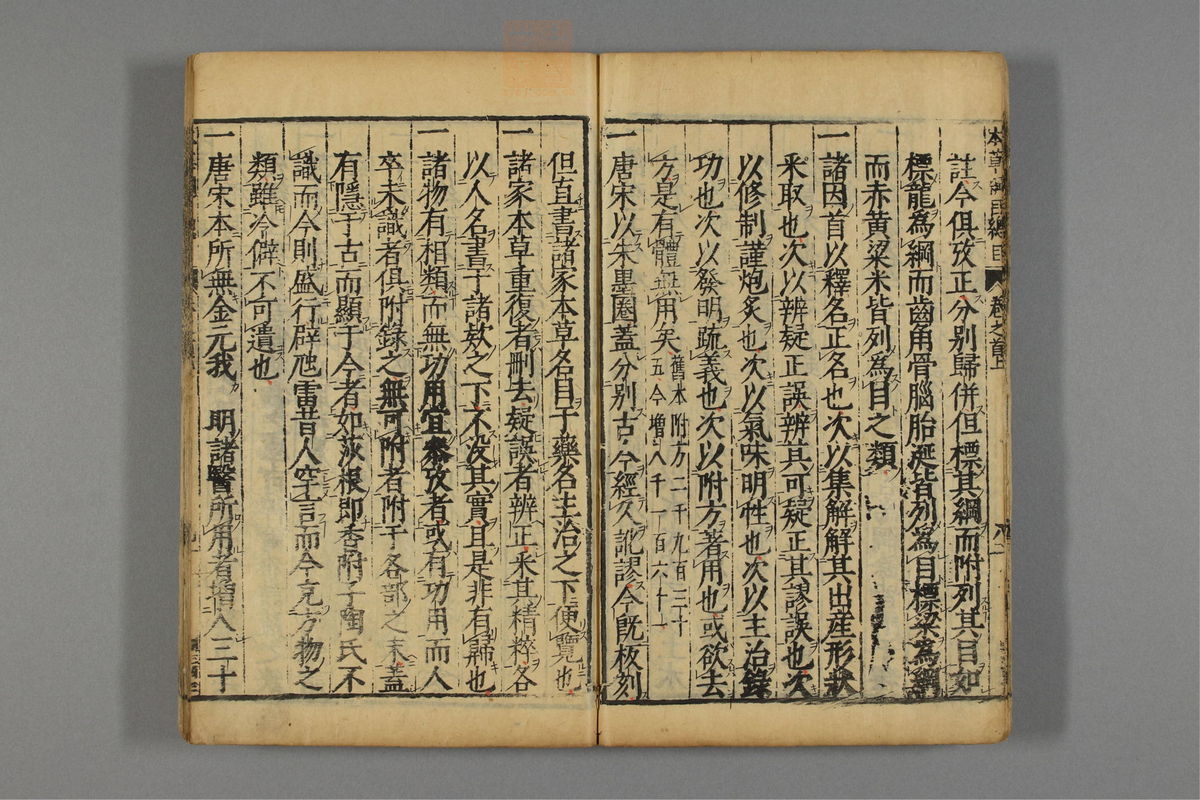 註今俱攷正分別歸併但標其綱而附列其目如
標龍為綱而齒角骨腦胎涎皆列為目標粱為綱
而赤黄粱米皆列為目之類
一諸因首以釋名正名也次以集解解其出産形狀
采取也次以辨疑正誤辨其可疑正其謬誤也次
以修制謹炮炙也次以氣味明性也次以主治錄
功也次以發明疏義也次以附方著用也或欲去
方是有體無用矣舊本附方二千九百三十
五今增八千一百六十一
一唐宋以朱墨圈蓋分別古今經久訛謬今既板刻
但直書諸家本草名目于藥名主治之下便覽也
一諸家本草重復者刪去疑誤者辨正采其精粹各
以人名書于諸款之下不没其實且是非有歸也
一諸物有相類而無功用宜參攷者或有功用而人
卒未識者俱附錄之無可附者附于各部之末蓋
有隱于古而顯于今者如莎根即香附子陶氏不
識而今則盛行辟虺雷昔人罕言而今充方物之
類雖冷僻不可遺也
一唐宋本所無金元我 明諸醫所用者增入三十
卷之首上